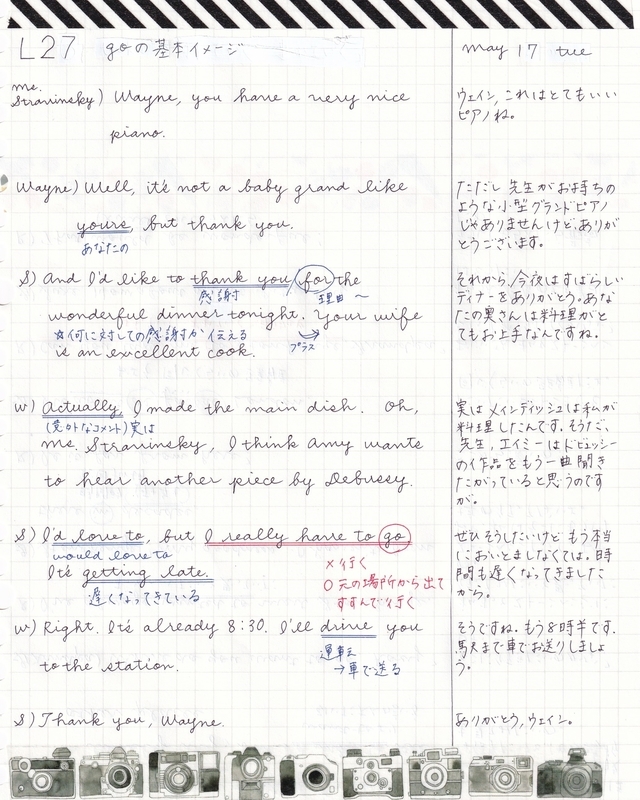 L27 goの基本イメージ
may 17 tue
ms.
Stravinsky) Wayne, you have a very nice
piano.
ウェイン,これはとてもいい
ピアノね。
Wayne) Well, it's not a baby grand like
yours, but thank you.
あなたの
ただし 先生がお持ちの
ような小型グランドピアノ
じゃありませんけど,ありが
とうございます。
S) And I'd like to thank you / for the
感謝 理由〜
wonderful dinner tonight. Your wife
☆何に対しての感謝か伝える プラス
is an excellent cook.
それから,今夜はすばらしい
ディナーをありがとう。あな
たの奥さんは料理がと
てもお上手なんですね。
W) Actually, I made the main dish. Oh,
(意外なコメント)実は
ms. Stravinsky, I think Amy wants
to hear another piece by Debussy.
実はメインディッシュは私が
料理したんです。そうだ,
先生,エイミーはドビュッシー
の作品をもう一曲聞き
たがっていると思うのです
が。
S) I'd love to, but I really have to go
would love to
×行く
It's getting late.
○元の場所から出て
遅くなってきている
すすんで行く
ぜひそうしたいけど もう本当
においとましなくては。時
間も遅くなってきました
から。
W) Right. It's already 8:30. I'll drive you
運転
to the station.
→車で送る
そうですね。もう8時半です.
駅まで車でお送りしましょ
う。
S) Thank you, Wayne.
ありがとう,ウェイン。